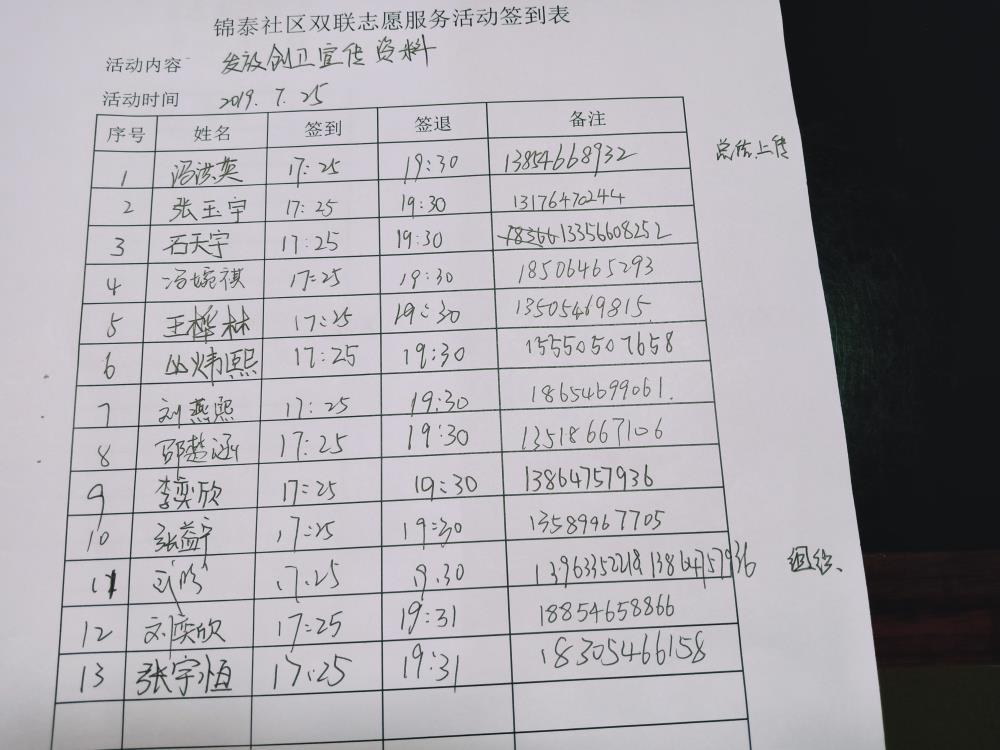 锦泰社区双联志愿服务活动签到表
活动内容 发放创卫宣传资料
活动时间 2019.7.25
序号 姓名 签到 签退 备注
总结上传
1 冯洪英 17:25 19:30 13854668932
2 张玉宇 17:25 19:30 13176470244
3 石天宇 17:25 19:30 18366 13356608252
4 冯婉祺 17:25 19:30 18506465293
5 王桦林 17:25 19:30 13505469815
6 丛炜熙 17:25 19:30 15550507658
7 刘燕熙 17:25 19:30 18654699061.
8 邵楚涵 17:25 19:30 13518667106
9 李奕欣 17:25 19:30 13864757936
10 张益宁 17:25 19:30 13589967705
11 17.25 19.30 13963352218 13864757936 组织、
12 刘奕欣 17:25 19:31 18854658866
13 张宇恒 17:25 19:31 18305466158